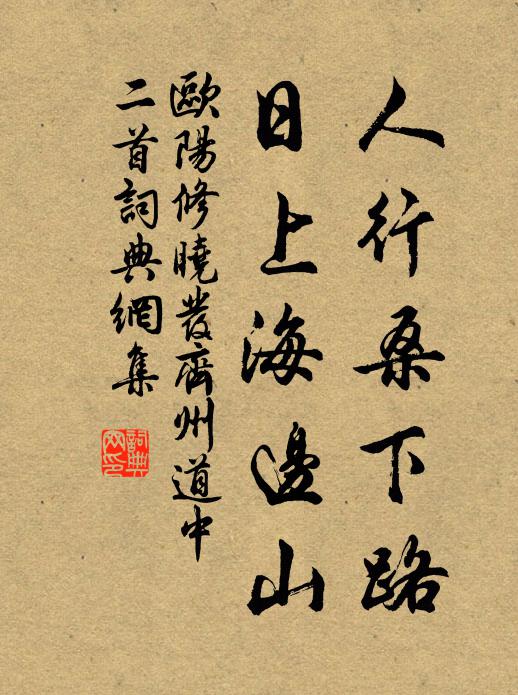 人行桑下路
日上海邊山
歐陽修曉發齊州道中
二首詞典網集
詞典
网印